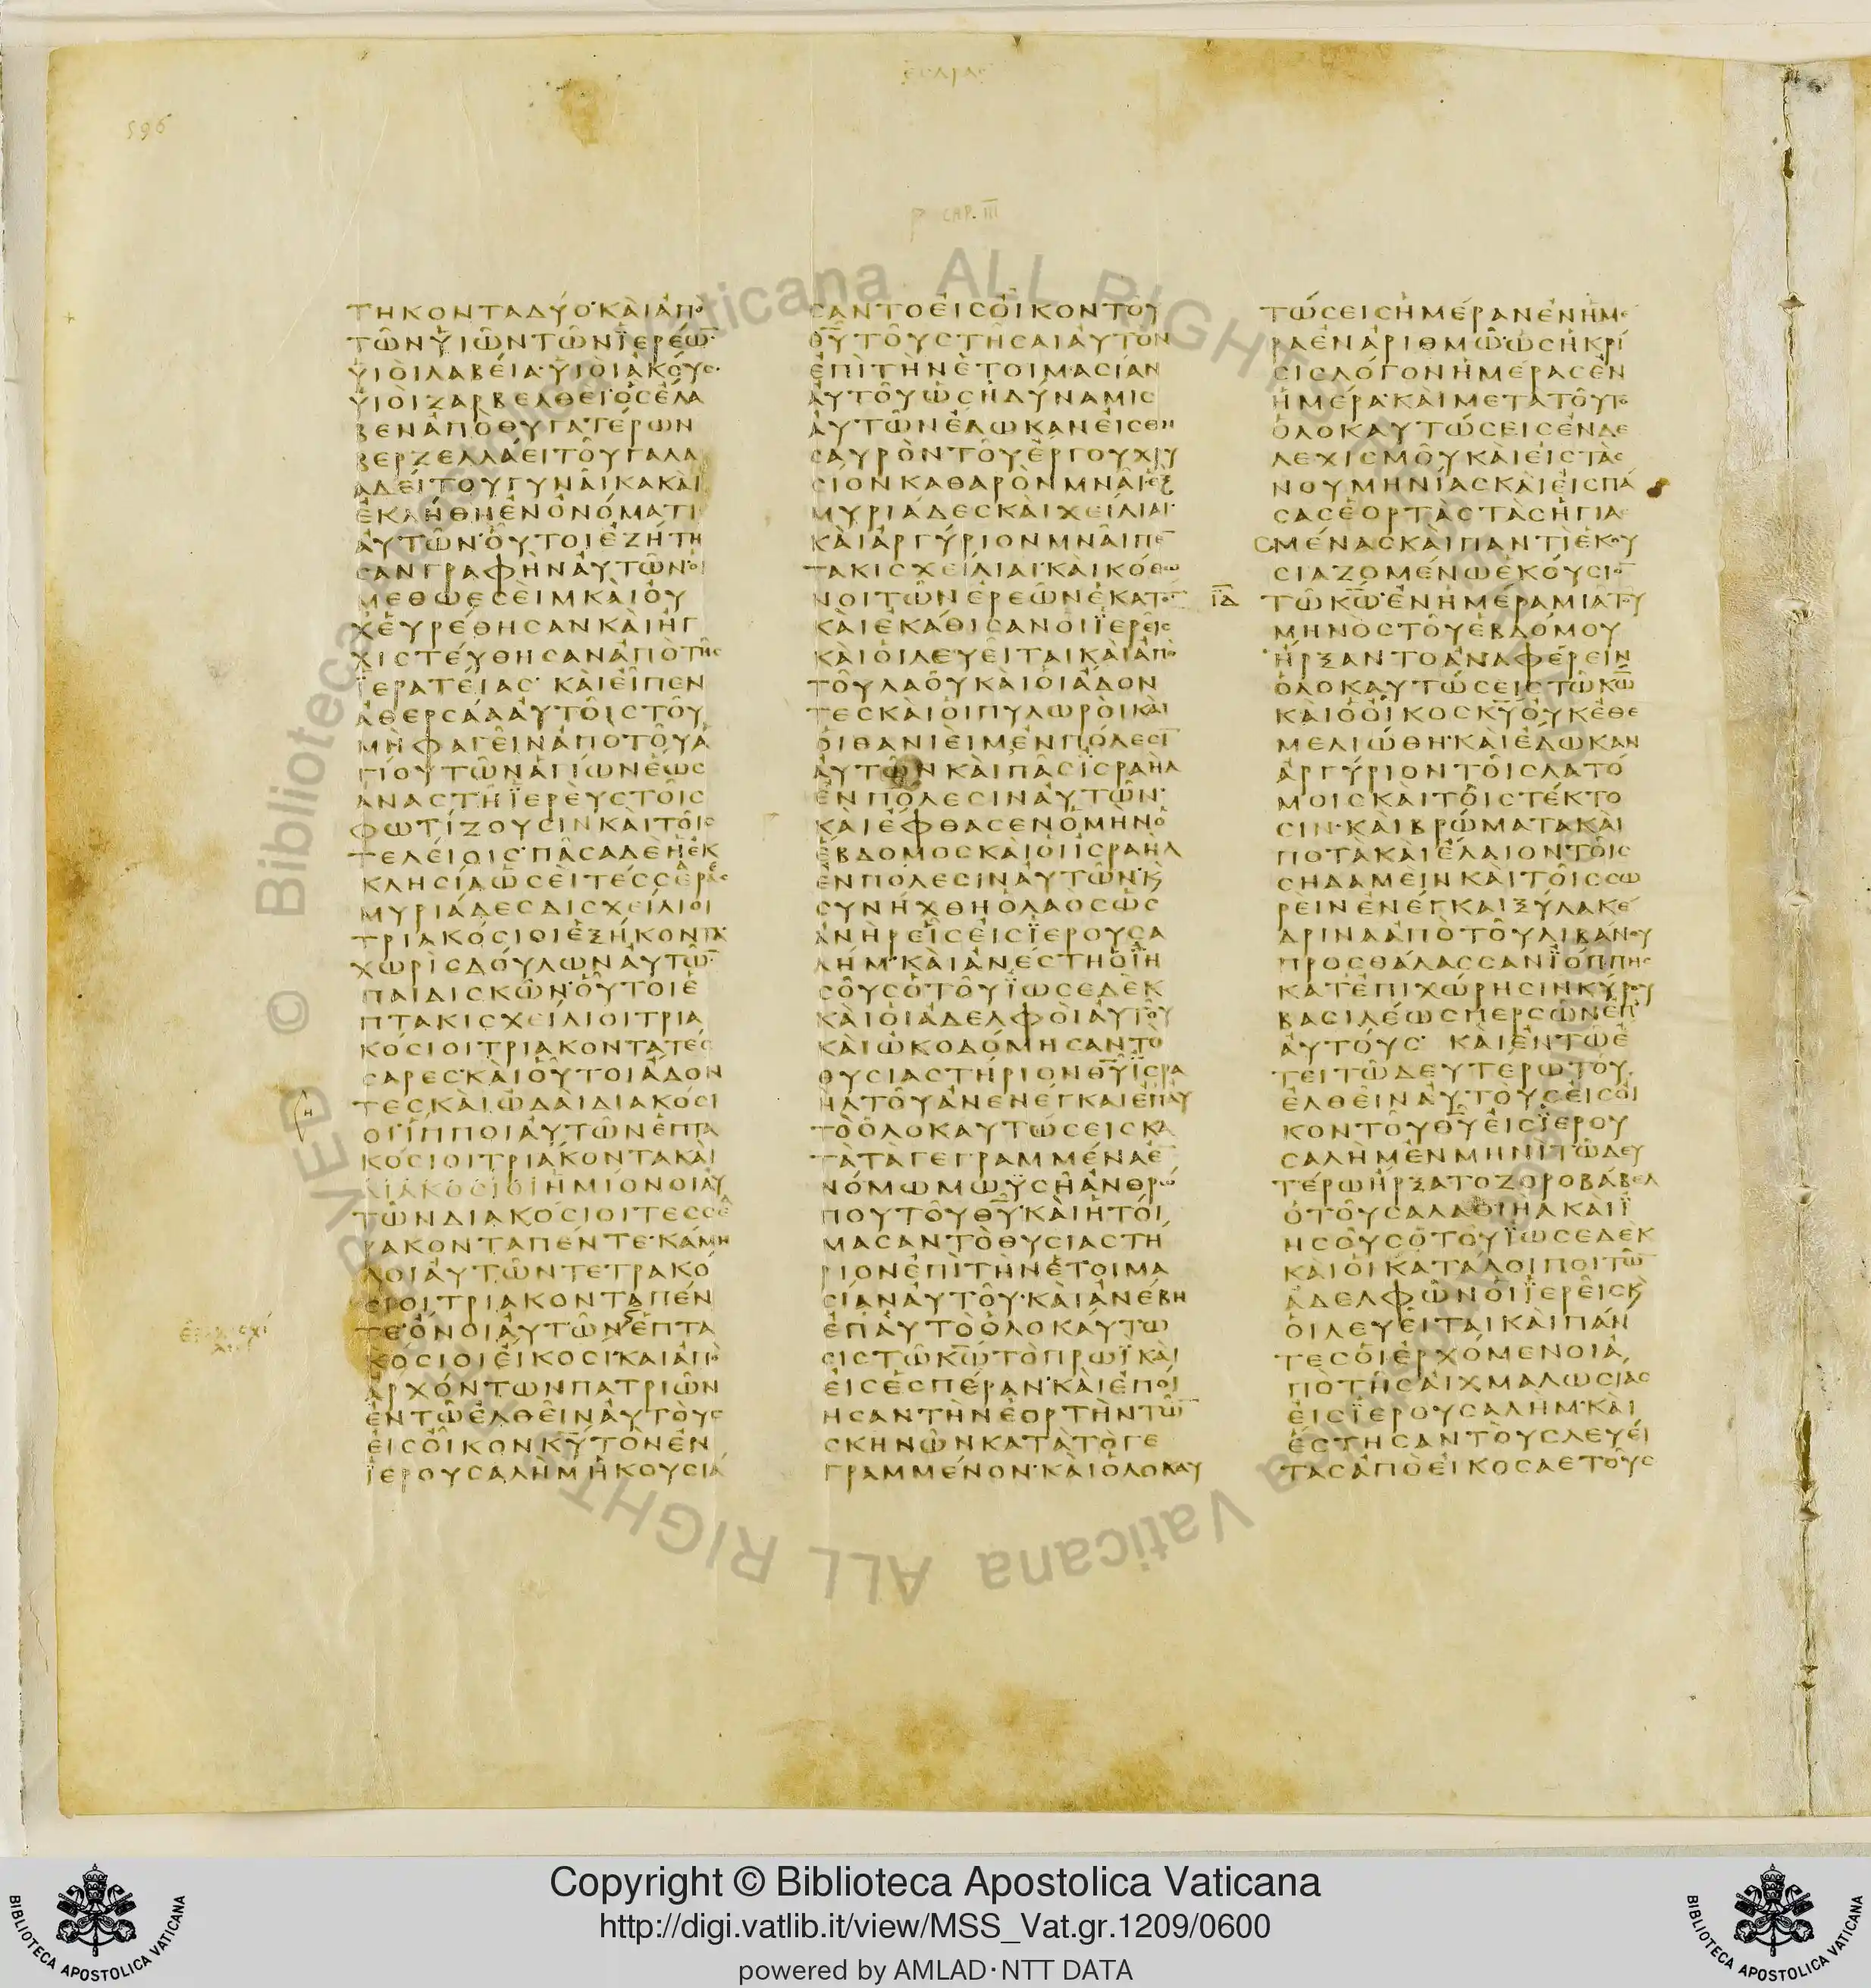 596
CAP. III
ΤΗΚΟΝΤΑΔΥΟ·ΚΑΙΑΠΟ
ΤΩΝΥΙΩΝΤΩΝΪΕΡΕΩ̅·
ΥΙΟΙΛΑΒΕΙΑ·ΥΙΟΙΑΚΟΥΣ·
ΥΙΟΙΖΑΡΒΕΛΘΕΙ·ΟΣΕΛΑ
ΒΕΝΑΠΟΘΥΓΑΤΕΡΩΝ
ΒΕΡΖΕΛΛΑΕΙΤΟΥΓΑΛΑ
ΑΔΕΙΤΟΥΓΥΝΑΙΚΑΚΑΙ
ΕΚΛΗΘΗΕΝΟΝΟΜΑΤΙ
ΑΥΤΩΝ·ΟΥΤΟΙΕΖΗΤΗ
ΣΑΝΓΡΑΦΗΝΑΥΤΩΝ·ΟΙ
ΜΕΘΩΕΣΕΙΜΚΑΙΟΥ
ΧΕΥΡΕΘΗΣΑΝΚΑΙΗΓ
ΧΙΣΤΕΥΘΗΣΑΝΑΠΟΤΗΣ
ΪΕΡΑΤΕΙΑΣ· ΚΑΙΕΙΠΕΝ
ΑΘΕΡΣΑΑΑΥΤΟΙΣΤΟΥ
ΜΗΦΑΓΕΙΝΑΠΟΤΟΥΑ
ΓΙΟΥΤΩΝΑΓΙΩΝΕΩΣ
ΑΝΑΣΤΗΪΕΡΕΥΣΤΟΙΣ
ΦΩΤΙΖΟΥΣΙΝΚΑΙΤΟΙΣ
ΤΕΛΕΙΟΙΣ·ΠΑΣΑΔΕΗΕΚ
ΚΛΗΣΙΑΩΣΕΙΤΕΣΣΕΡΕΣ
ΜΥΡΙΑΔΕΣΔΙΣΧΕΙΛΙΟΙ
ΤΡΙΑΚΟΣΙΟΙΕΞΗΚΟΝΤΑ·
ΧΩΡΙΣΔΟΥΛΩΝΑΥΤΩ̅·
ΠΑΙΔΙΣΚΩΝ·ΟΥΤΟΙΕ
ΠΤΑΚΙΣΧΕΙΛΙΟΙΤΡΙΑ
ΚΟΣΙΟΙΤΡΙΑΚΟΝΤΑΤΕΣ
ΣΑΡΕΣ·ΚΑΙΟΥΤΟΙΑΔΟΝ
ΤΕΣΚΑΙΩΔΑΙΔΙΑΚΟΣΙ
ΟΙΪΠΠΟΙΑΥΤΩΝΕΠΤΑ
ΚΟΣΙΟΙΤΡΙΑΚΟΝΤΑΚΑΙ
ΔΙΑΚΟΣΙΟΙΗΜΙΟΝΟΙΑΥ
ΤΩΝΔΙΑΚΟΣΙΟΙΤΕΣΣΕ
ΡΑΚΟΝΤΑΠΕΝΤΕ·ΚΑΜΗ
ΛΟΙΑΥΤΩΝΤΕΤΡΑΚΟ
ΣΙΟΙΤΡΙΑΚΟΝΤΑΠΕΝ
ΤΕ·ΟΝΟΙΑΥΤΩΝΕΠΤΑ
ΚΟΣΙΟΙΕΙΚΟΣΙ·ΚΑΙΑΠΟ
ΑΡΧΟΝΤΩΝΠΑΤΡΙΩΝ
ΕΝΤΩΕΛΘΕΙΝΑΥΤΟΥΣ
ΕΙΣΟΙΚΟΝΚ̅Υ̅ΤΟΝΕΝ
ΪΕΡΟΥΣΑΛΗΜΗΚΟΥΣΙΑ
Η
ΣΑΝΤΟΕΙΣΟΙΚΟΝΤΟΥ
Θ̅Υ̅ΤΟΥΣΤΗΣΑΙΑΥΤΟΝ
ΕΠΙΤΗΝΕΤΟΙΜΑΣΙΑΝ
ΑΥΤΟΥΩΣΗΔΥΝΑΜΙΣ
ΑΥΤΩΝΕΔΩΚΑΝΕΙΣΘΗ
ΣΑΥΡΟΝΤΟΥΕΡΓΟΥΧΡΥ
ΣΙΟΝΚΑΘΑΡΟΝΜΝΑΙΕΞ
ΜΥΡΙΑΔΕΣΚΑΙΧΕΙΛΙΑΙ·
ΚΑΙΑΡΓΥΡΙΟΝΜΝΑΙΠΕ̅
ΤΑΚΙΣΧΕΙΛΙΑΙ·ΚΑΙΚΟΘΩ
ΝΟΙΤΩΝΕΡΕΩΝΕΚΑΤΟ̅
ΚΑΙΕΚΑΘΙΣΑΝΟΙΪΕΡΕΙΣ
ΚΑΙΟΙΛΕΥΕΙΤΑΙΚΑΙΑΠΟ
ΤΟΥΛΑΟΥΚΑΙΟΙΑΔΟΝ
ΤΕΣΚΑΙΟΙΠΥΛΩΡΟΙΚΑΙ
ΟΙΘΑΝΙΕΙΜΕΝΠΟΛΕΣΙ̅
ΑΥΤΩΝΚΑΙΠΑΣΪΣΡΑΗΛ
ΕΝΠΟΛΕΣΙΝΑΥΤΩΝ·
ΚΑΙΕΦΘΑΣΕΝΟΜΗΝΟ
ΕΒΔΟΜΟΣΚΑΙΟΙΙΣΡΑΗΛ
ΕΝΠΟΛΕΣΙΝΑΥΤΩΝ·Κ
ΣΥΝΗΧΘΗΟΛΑΟΣΩΣ
ΑΝΗΡΕΙΣΕΙΣΪΕΡΟΥΣΑ
ΛΗΜ·ΚΑΙΑΝΕΣΤΗΟΪΗ
ΣΟΥΣΟΤΟΥΪΩΣΕΔΕΚ
ΚΑΙΟΙΑΔΕΛΦΟΙΑΥΤΟΥ
ΚΑΙΩΚΟΔΟΜΗΣΑΝΤΟ
ΘΥΣΙΑΣΤΗΡΙΟΝΘ̅Υ̅ΪΣΡΑ
ΗΛΤΟΥΑΝΕΝΕΓΚΑΙΕΠΑΥ
ΤΟΟΛΟΚΑΥΤΩΣΕΙΣΚΑ
ΤΑΤΑΓΕΓΡΑΜΜΕΝΑΕ̅
ΝΟΜΩΜΩΥΣΗΑΝΘΡΩ
ΠΟΥΤΟΥΘ̅Υ̅·ΚΑΙΗΤΟΙ
ΜΑΣΑΝΤΟΘΥΣΙΑΣΤΗ
ΡΙΟΝΕΠΙΤΗΝΕΤΟΙΜΑ
ΣΙΑΝΑΥΤΟΥ·ΚΑΙΑΝΕΒΗ
ΕΠΑΥΤΟΟΛΟΚΑΥΤΩ
ΣΙΣΤΩΚ̅Ω̅ΤΟΠΡΩΪΚΑΙ
ΕΙΣΕΣΠΕΡΑΝ·ΚΑΙΕΠΟΙ
ΗΣΑΝΤΗΝΕΟΡΤΗΝΤΩ̅
ΣΚΗΝΩΝΚΑΤΑΤΟΓΕ
ΓΡΑΜΜΕΝΟΝ·ΚΑΙΟΛΟΚΑΥ
ΤΩΣΕΙΣΗΜΕΡΑΝΕΝΗΜΕ
ΡΑΕΝΑΡΙΘΜΩ·ΩΣΗΚΡΙ
ΣΙΣΛΟΓΟΝΗΜΕΡΑΣΕΝ
ΗΜΕΡΑ·ΚΑΙΜΕΤΑΤΟΥΤΟ
ΟΛΟΚΑΥΤΩΣΕΙΣΕΝΔΕ
ΛΕΧΙΣΜΟΥΚΑΙΕΙΣΤΑΣ
ΝΟΥΜΗΝΙΑΣΚΑΙΕΙΣΠΑ
ΣΑΣΕΟΡΤΑΣΤΑΣΗΓΙΑ
ΣΜΕΝΑΣΚΑΙΠΑΝΤΙΕΚΟΥ
ΣΙΑΖΟΜΕΝΩΕΚΟΥΣΙΟ̅
ΙΔ ΤΩΚ̅Ω̅·ΕΝΗΜΕΡΑΜΙΑΤΟΥ
ΜΗΝΟΣΤΟΥΕΒΔΟΜΟΥ
ΗΡΞΑΝΤΟΑΝΑΦΕΡΕΙΝ
ΟΛΟΚΑΥΤΩΣΕΙΣΤΩΚ̅Ω̅
ΚΑΙΟΟΙΚΟΣΚ̅Υ̅ΟΥΚΕΘΕ
ΜΕΛΙΩΘΗ·ΚΑΙΕΔΩΚΑΝ
ΑΡΓΥΡΙΟΝΤΟΙΣΛΑΤΟ
ΜΟΙΣΚΑΙΤΟΙΣΤΕΚΤΟ
ΣΙΝ·ΚΑΙΒΡΩΜΑΤΑΚΑΙ
ΠΟΤΑΚΑΙΕΛΑΙΟΝΤΟΙΣ
ΣΗΔΑΜΕΙΝΚΑΙΤΟΙΣΣΩ
ΡΕΙΝΕΝΕΓΚΑΙΞΥΛΑΚΕ
ΔΡΙΝΑΑΠΟΤΟΥΛΙΒΑΝΟΥ
ΠΡΟΣΘΑΛΑΣΣΑΝΪΟΠΠΗΣ
ΚΑΤΕΠΙΧΩΡΗΣΙΝΚΥΡΟΥ
ΒΑΣΙΛΕΩΣΠΕΡΣΩΝΕΠ
ΑΥΤΟΥΣ· ΚΑΙΕΝΤΩΕ
ΤΕΙΤΩΔΕΥΤΕΡΩΤΟΥ
ΕΛΘΕΙΝΑΥΤΟΥΣΕΙΣΟΙ
ΚΟΝΤΟΥΘ̅Υ̅ΕΙΣΪΕΡΟΥ
ΣΑΛΗΜΕΝΜΗΝΙΤΩΔΕΥ
ΤΕΡΩΗΡΞΑΤΟΖΟΡΟΒΑΒΕΛ
ΟΤΟΥΣΑΛΑΘΙΗΛΚΑΙΪ
ΗΣΟΥΣΟΤΟΥΪΩΣΕΔΕΚ
ΚΑΙΟΙΚΑΤΑΛΟΙΠΟΙΤΩ̅
ΑΔΕΛΦΩΝΟΙΪΕΡΕΙΣΚ
ΟΙΛΕΥΕΙΤΑΙΚΑΙΠΑΝ
ΤΕΣΟΙΕΡΧΟΜΕΝΟΙΑ
ΠΟΤΗΣΑΙΧΜΑΛΩΣΙΑΣ
ΕΙΣΪΕΡΟΥΣΑΛΗΜ·ΚΑΙ
ΕΣΤΗΣΑΝΤΟΥΣΛΕΥΕΙ
ΤΑΣΑΠΟΕΙΚΟΣΑΕΤΟΥΣ
© Biblioteca Vaticana ALL RIGHT
Vaticana ALL RIGHT
RVED
Copyright © Biblioteca Apostolica Vaticana
http://digi.vatlib.it/view/MSS_Vat.gr.1209/0600
powered by AMLAD·NTT DATA
BIBLIOTECA APOSTOLICA VATICANA
BIBLIOTECA APOSTOLICA VATICANA